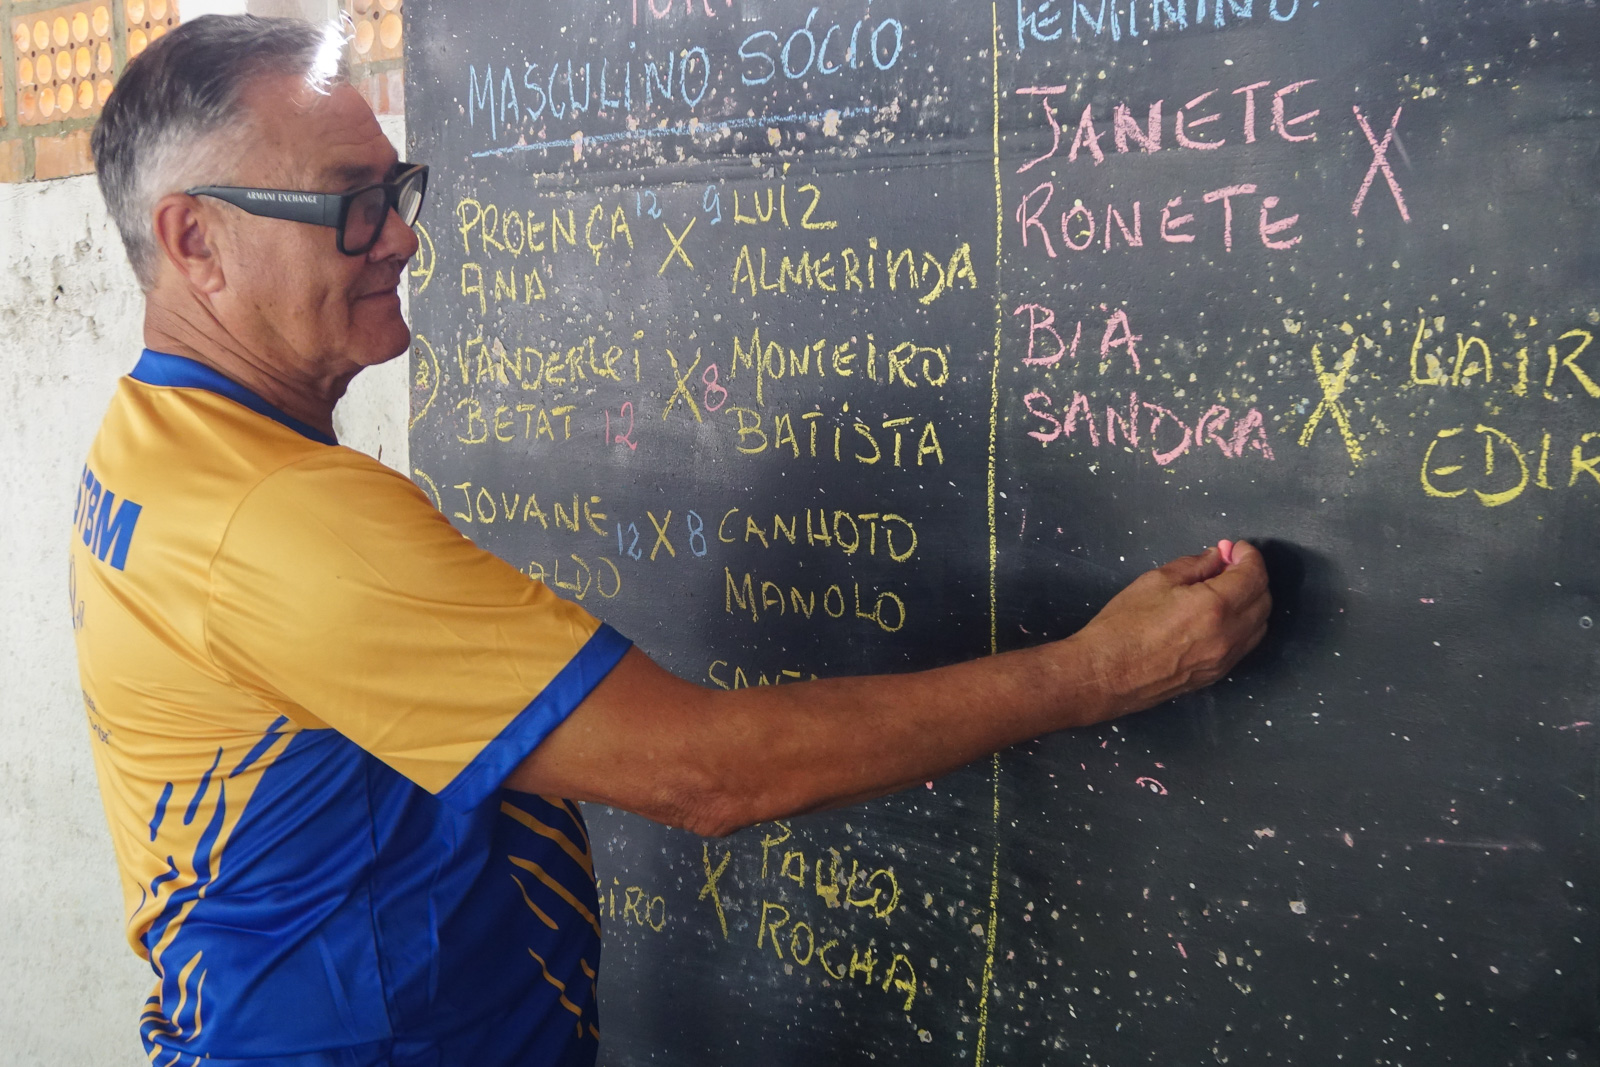 MASCULINO SÓCIO
1) PROENÇA 12 X 9 LUÍZ
ANA ALMERINDA
2) VANDERLEI X 8 MONTEIRO
BETAT 12 BATISTA
JOVANE 12 X 8 CANHOTO
ALDO MANOLO
X PAULO
EIRO ROCHA
FEMININO
JANETE X
RONETE
BIA X LAIR
SANDRA EDIR
ARMANI EXCHANGE
STBM